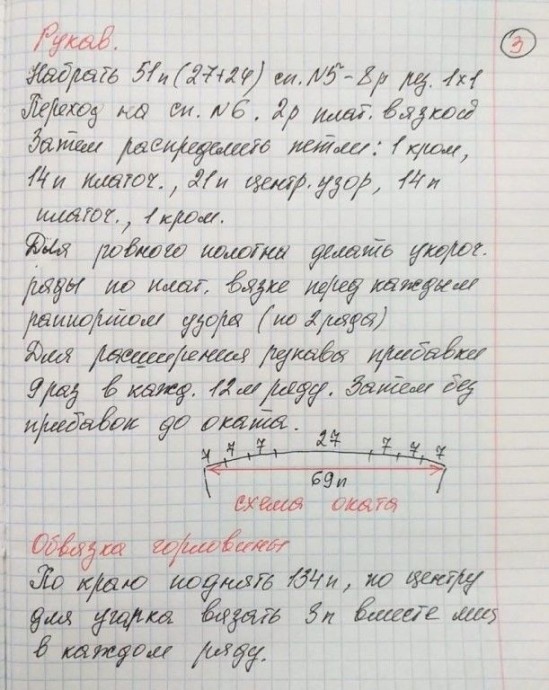 3
Рукав.
Набрать 51п (27+24) сп. №5 - 8р рез. 1х1
Переход на сп. №6. 2р плат. вязкой
Затем распределить петли: 1 кром,
14п платоч., 21п центр. узор, 14п
платоч., 1 кром.
Для ровного полотна делать укороч.
ряды по плат. вязке перед каждым
раппортом узора (по 2 ряда)
Для расширения рукава прибавки
9 раз в кажд. 12м ряду. Затем без
прибавок до оката.
7 7 7 27 7 7 7
69п
схема оката
Обвязка горловины
По краю поднять 134п, по центру
для уголка вязать 3п вместе лиц
в каждом ряду.